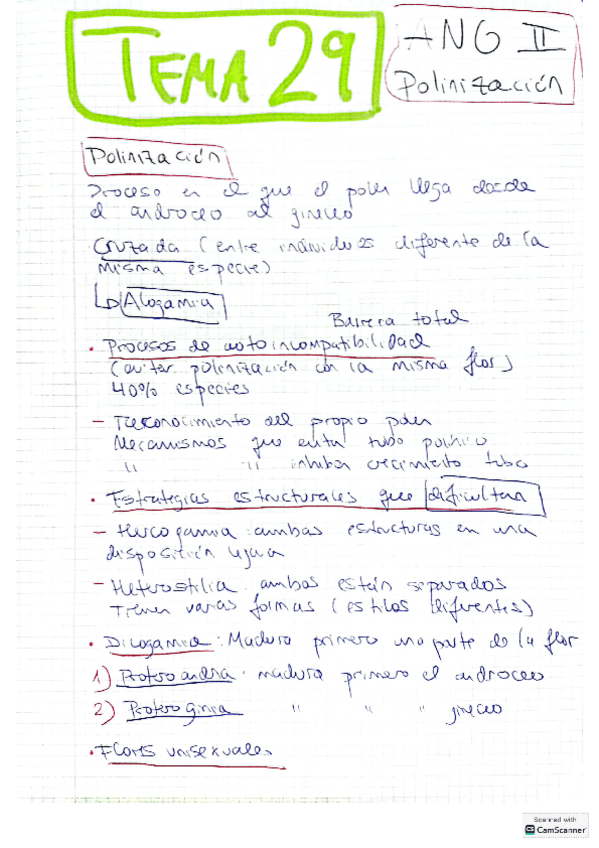 TEMA 29
ANG II
Polinización
Polinización
Proceso en el que el polen llega desde
el androceo al gineceo
Cruzada (entre individuos diferente de la
misma especie)
↳ Alogamia
Barrera total
· Procesos de autoincompatibilidad
(evitar polinización con la misma flor)
40% especies
- Reconocimiento del propio polen
Mecanismos que evita tubo polínico
" " inhiben crecimiento tubo
· Estrategias estructurales que dificultan
- Hercogamia: ambas estructuras en una
disposición lejana
- Heterostilia: ambos están separados
Tienen varias formas (estilos diferentes)
· Dicogamia: Madura primero una parte de la flor
1) Proteroandria: madura primero el androceo
2) Proteroginia " " " gineceo
· Flores unisexuales
Scanned with
CamScanner